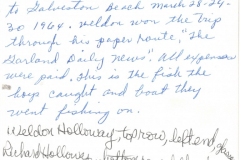 to Galveston Beach March 28-29-
30 1964. Weldon won the trip
through his paper route, "The
Garland Daily News". All expenses
were paid. This is the fish the
boys caught and boat they
went fishing on.
Weldon Holloway top row, left end,
Richard Holloway, bottom